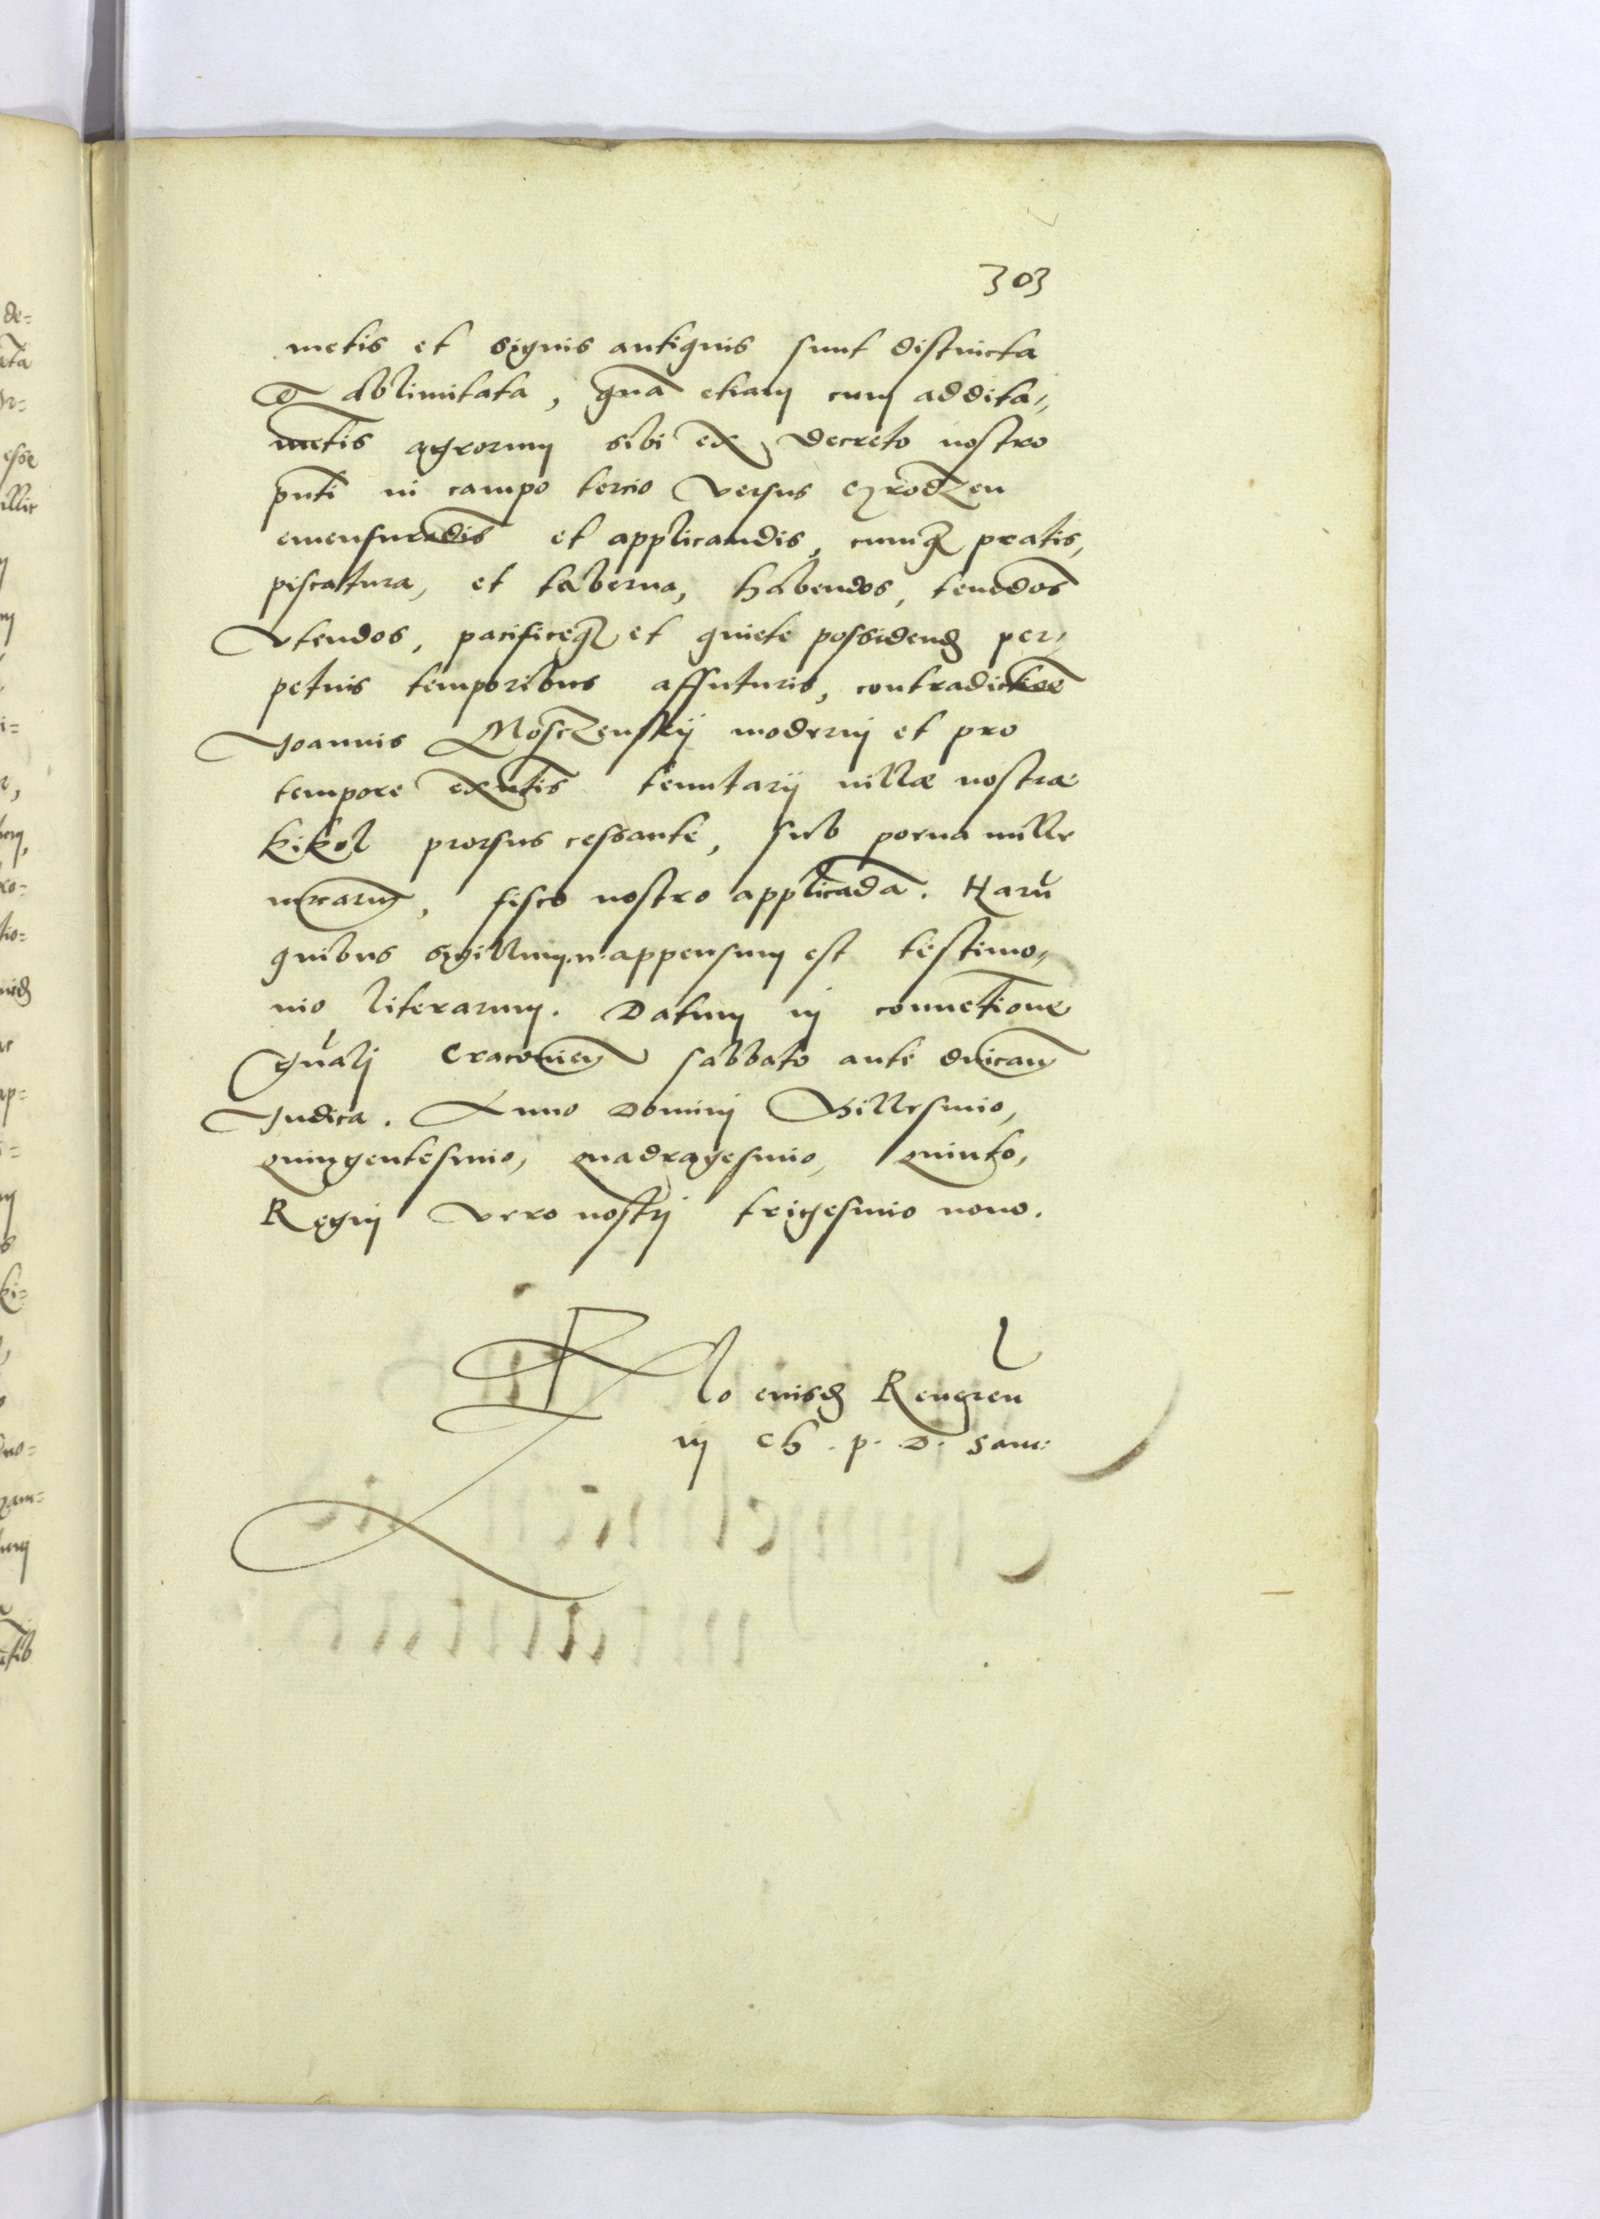 303
metis et signis antiquis sunt distincta
et ablimitata, quā etiam cum addita-
mētis agrorum sibi ex decreto nostro
pn̄ti in campo tercio versus
emensurādis et applicandis, cumq₃ pratis,
piscatura, et taberna, habendos, tenēdos
vtendos, pacificeq₃ et quiete possidend per-
petuis temporibus affuturis, contradictiōe
Joannis Mosczenskij moderni et pro
tempore exn̄tis tenutarij villæ nostræ
Kikol prorsus cessante, sub poena mille
mrcarum, fisco nostro applicādā. Harū
quibus sigillum n. appensum est testimo-
nio literarum. Datum in conuētione
gn̄ali Cracovien sabbato ante dn̄icam
Judica. Anno Domini Millesimo,
quingentesimo, quadragesimo, quinto,
Regni vero nostri trigesimo nono.
eiusd
in Ch. p. D. Sam: